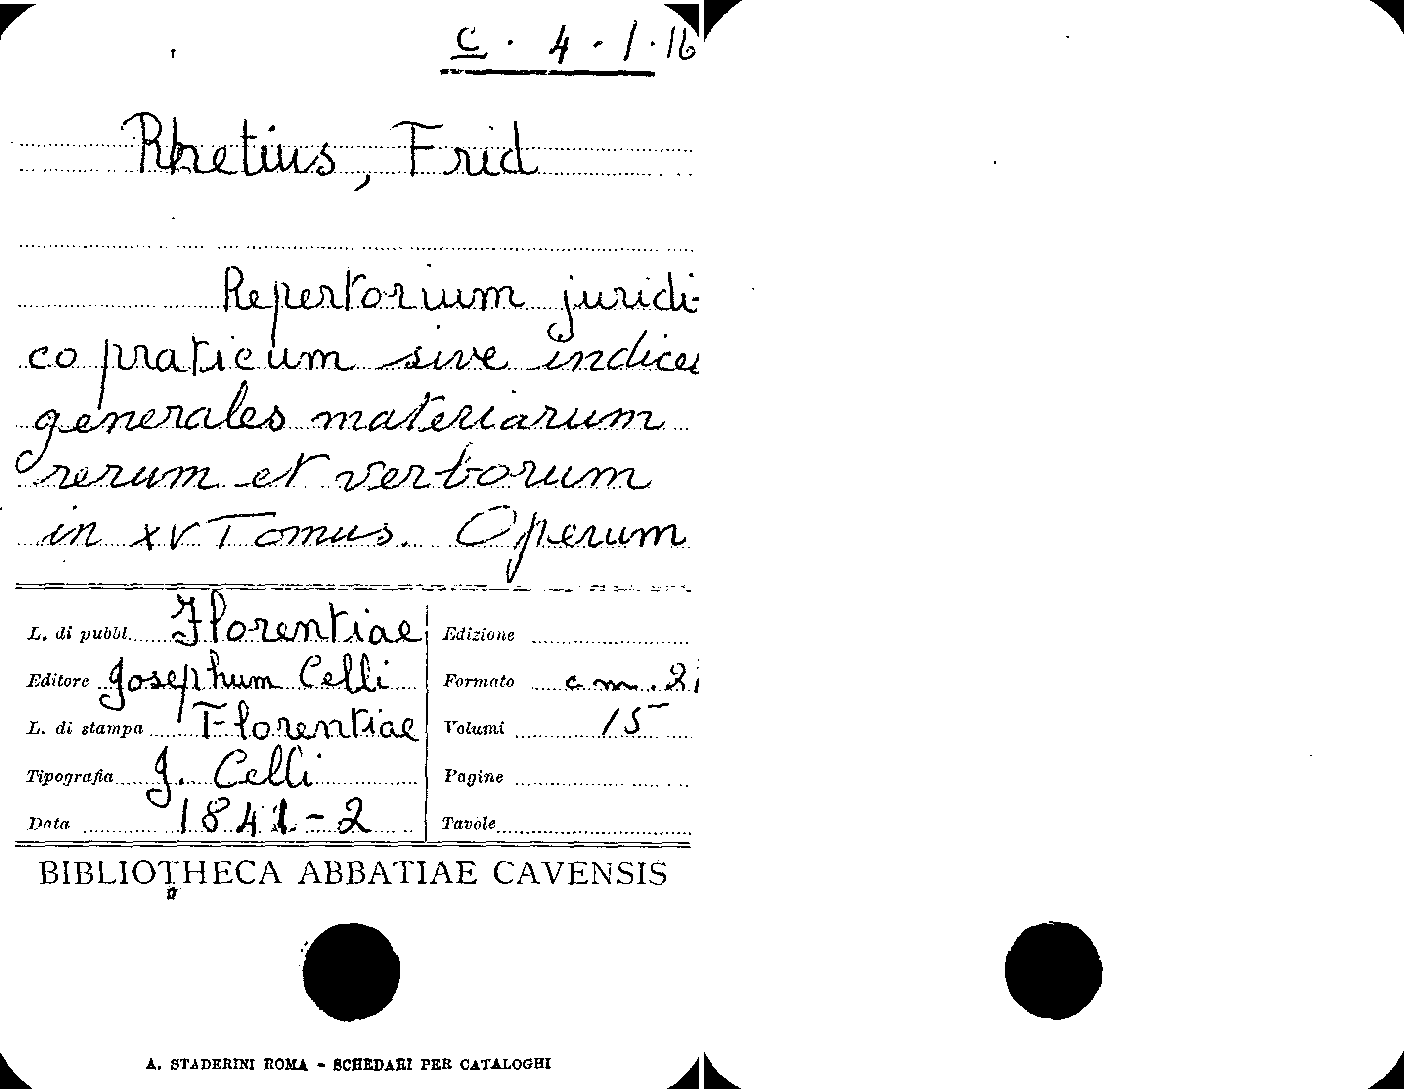 C. 4-1.16
Rhetius, Frid
Repertorium juridi-
co praticum sive indices
generales materiarum
rerum et verborum
in XV Tomus. Operum
L. di pubbl. Florentiae
Editore Josephum Celli
L. di stampa Florentiae
Tipografia J. Celli
Data 1841-2
Edizione
Formato cm.
Volumi 15
Pagine
Tavole
BIBLIOTHECA ABBATIAE CAVENSIS
A. STADERINI ROMA - SCHEDARI PER CATALOGHI